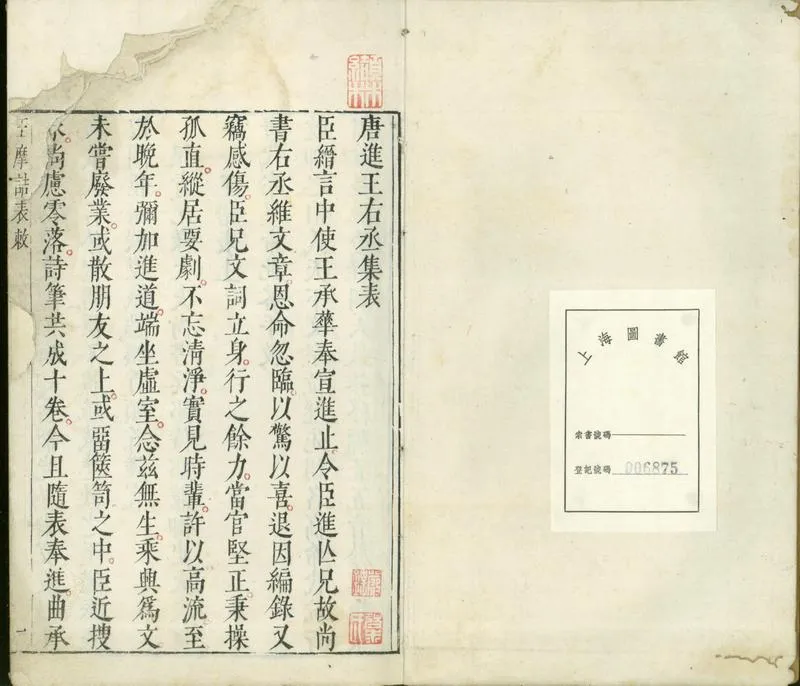 上海圖書館
索書號碼
登記號碼 006875
唐進王右丞集表
臣縉言中使王承華奉宣進止令臣進亾兄故尚
書右丞維文章。恩命忽臨。以驚以喜。退因編錄又
竊感傷。臣兄文詞立身。行之餘力。當官堅正。秉操
孤直。縱居要劇。不忘清淨。實見時輩。許以高流。至
於晚年。彌加進道。端坐虛室。念兹無生。乘興爲文
未嘗廢業。或散朋友之上。或畱篋笥之中。臣近搜
求。尚慮零落。詩筆共成十卷。今且隨表奉進。曲承
王摩詰表敕 一